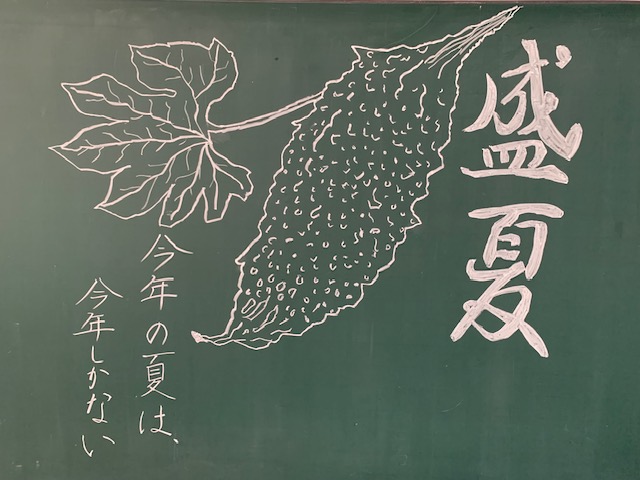 盛夏
今年の夏は、
今年しかない